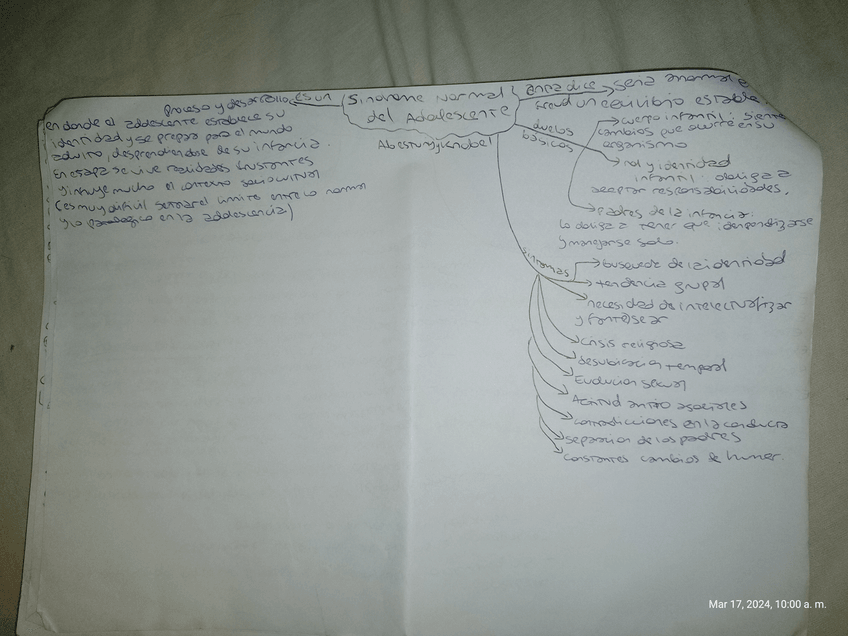 Síndrome Normal
del Adolescente
Aberastury y Knobel
es un
Proceso y desarrollo
en donde el adolescente establece su
identidad y se prepara para el mundo
adulto, desprendiendose de su infancia.
En etapa se vive realidades frustantes
y influye mucho el contexto sociocultural
(es muy dificil señalar el limite entre lo normal
y lo patologico en la adolescencia)
Freud
será anormal
un equilibrio estable
duelos
básicos
cuerpo infantil: siente
cambios que ocurre en su
organismo
rol y identidad
infantil: obliga a
aceptar responsabilidades,
padres de la infancia:
lo obliga a tener que independizarse
y manejarse solo.
sintomas
busqueda de la identidad
tendencia grupal
necesidad de intelectualizar
y fantasear
crisis religiosa
desubicacion temporal
Evolucion sexual
Actitud antiso asociales
contradicciones en la conducta
separacion de los padres
constantes cambios de humor.
Mar 17, 2024, 10:00 a. m.